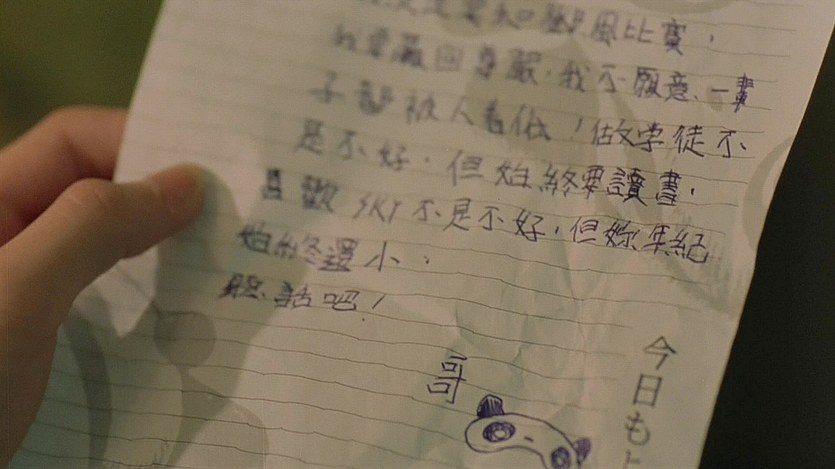 風比賽，
我要贏回尊嚴，我不願意一輩
子都被人看低！做学徒不
是不好，但始終要讀書，
喜歡SKY不是不好，但妳年紀
始終還小，
聽話吧！
哥
今日も